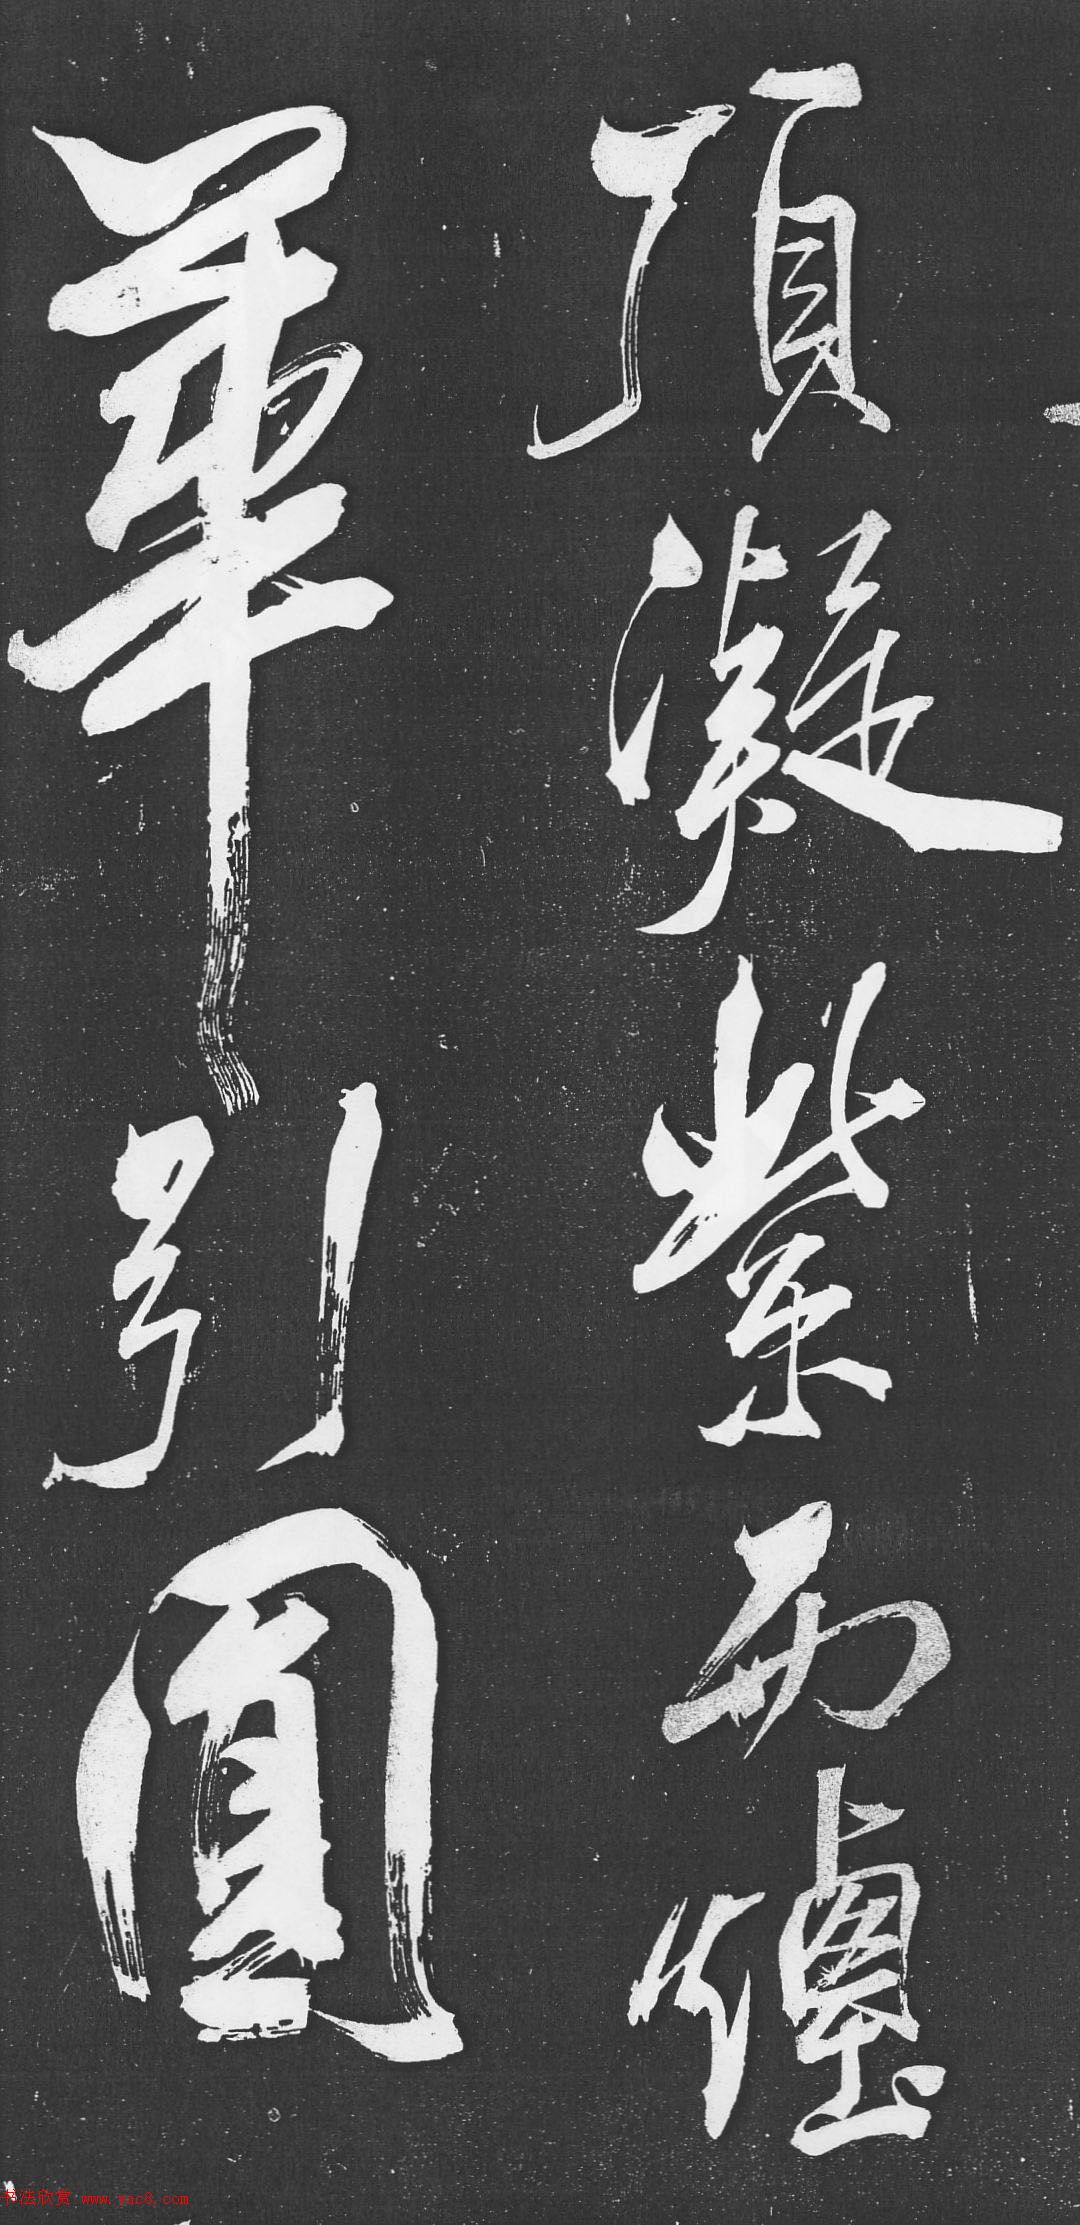 頂凝紫而煙
華引圓
书法欣赏 www.yac8.com